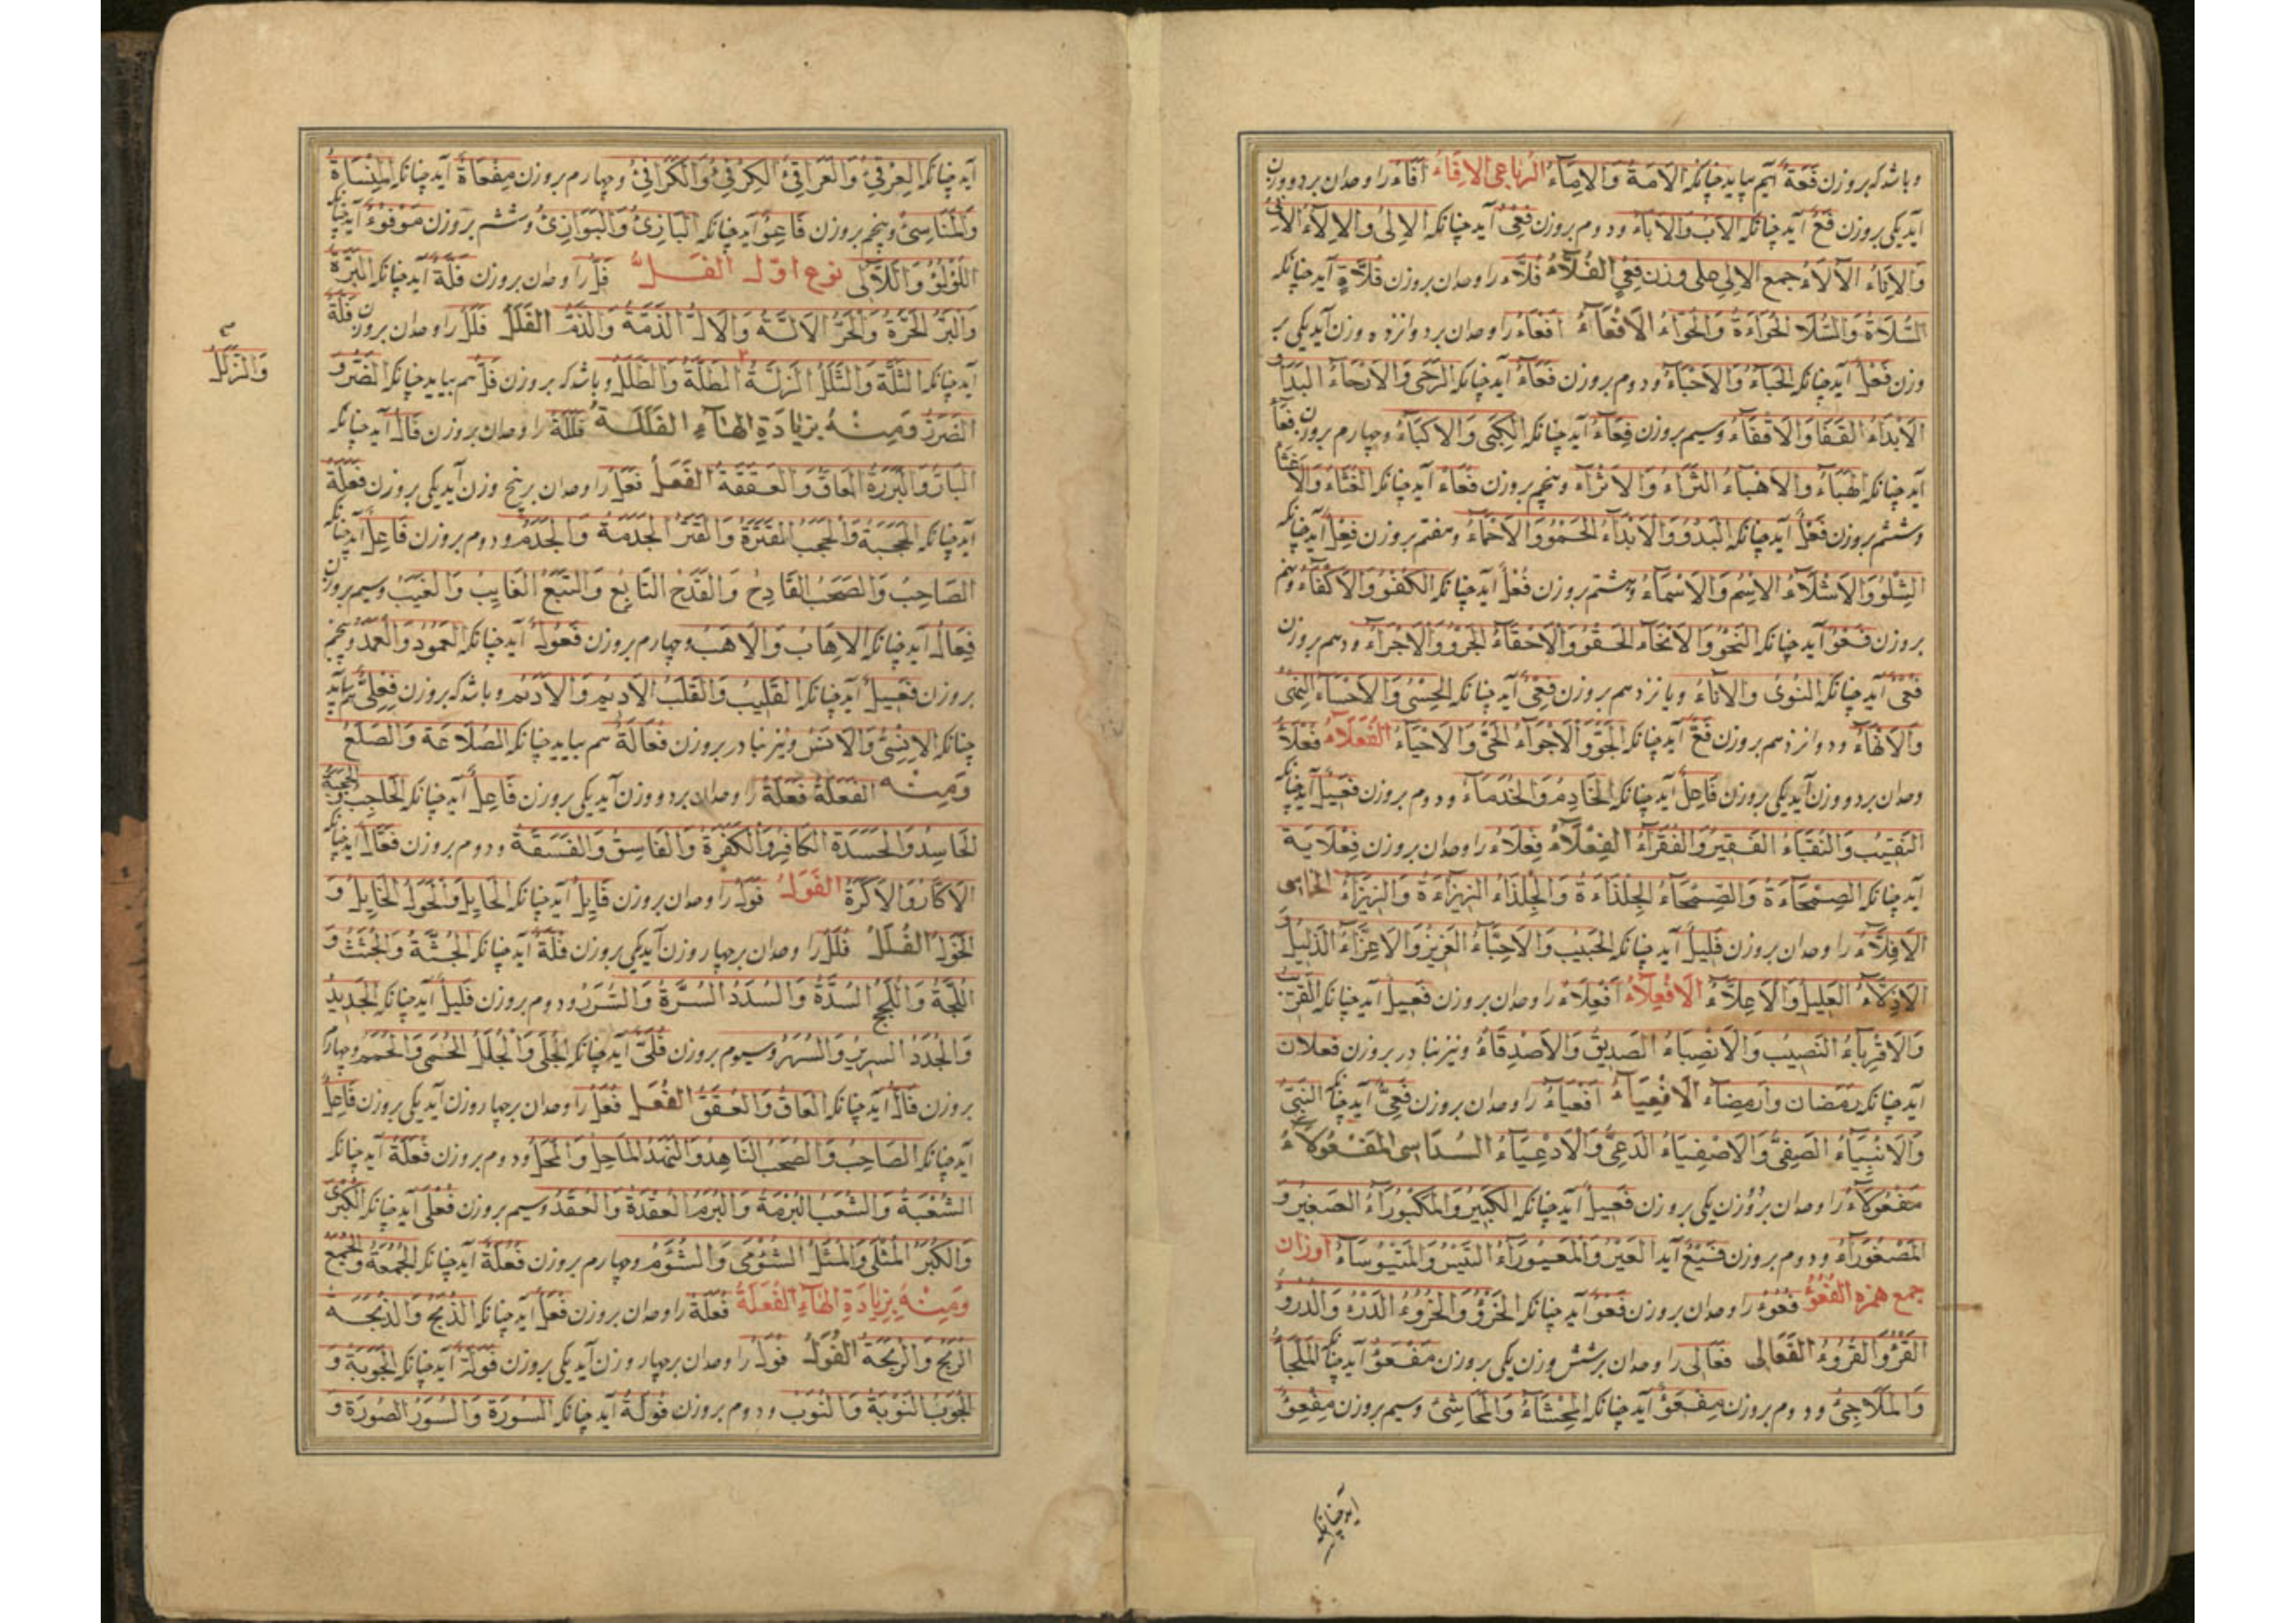 وباشد که بروزن فَعَةٌ هم بیاید چنانکه الاَمَةُ وَالاِمَاءُ الرباعی الافاءُ اَفَاءٌ را وحدان بر دو وزن
آید یکی بروزن فَعٌ آید چنانکه الاَبُ وَالاٰبَاءُ ودوم بروزن فِعًی آید چنانکه الاِلٰی والاٰلَاءُ الاِنٰی
وَالاٰنَاءُ الاٰلَاءُ جمع الاِلٰی علی وزن فِعًی الفُلَّاءُ فُلَّاءٌ را وحدان بروزن فُلَّاءَةٌ آید چنانکه
السُّلَاءَةُ وَالسُّلَّاءُ الحُوَّاءَةُ وَالحُوَّاءُ الاَفْعَاءُ اَفْعَاءٌ را وحدان بر دوانزده وزن آید یکی بر
وزن فَعْلٌ آید چنانکه الحَبَاءُ وَالاَحْبَاءُ ودوم بروزن فَعَاءٌ آید چنانکه الرَّحَی وَالاَرْحَاءُ البَدَا وَ
الاَبْدَاءُ القَفَا وَالاَقْفَاءُ وسیم بروزن فِعَاءٌ آید چنانکه الکِبَی وَالاَکْبَاءُ وچهارم بروزن فَعَاءٌ
آید چنانکه الهَبَاءُ وَالاَهْبَاءُ الثَّرَاءُ وَالاَثْرَاءُ وپنجم بروزن فُعَاءٌ آید چنانکه الغُثَاءُ وَالاَغْثَاءُ
وششم بروزن فَعْلٌ آید چنانکه البَدْوُ وَالاَبْدَاءُ الحَمْوُ وَالاَحْمَاءُ وهفتم بروزن فِعْلٌ آید چنانکه
الشِّلْوُ وَالاَشْلَاءُ الاِسْمُ وَالاَسْمَاءُ وهشتم بروزن فُعْلٌ آید چنانکه الکُفُوُ وَالاَکْفَاءُ ونهم
بروزن فَعْوٌ آید چنانکه النَّحْوُ وَالاَنْحَاءُ الحَقْوُ وَالاَحْقَاءُ الجَرْوُ وَالاَجْرَاءُ ودهم بروزن
فُعْیٌ آید چنانکه النُّؤْیُ والاٰنَاءُ ویانزدهم بروزن فِعْیٌ آید چنانکه الحِسْیُ وَالاَحْسَاءُ النِّهْیُ
وَالاَنْهَاءُ ودوانزدهم بروزن فَعٌّ آید چنانکه الجَوُّ وَالاَجْوَاءُ الحَیُّ وَالاَحْیَاءُ الفُعَلَاءُ فُعَلَاءُ
وحدان بر دو وزن آید یکی بروزن فَاعِلٌ آید چنانکه الخَادِمُ وَالخُدَمَاءُ ودوم بروزن فَعِیلٌ آید چنانکه
النَّقِیبُ وَالنُّقَبَاءُ الفَقِیرُ وَالفُقَرَاءُ الفِعْلَاءُ فِعْلَاءٌ را وحدان بروزن فِعْلَایَةٌ
آید چنانکه الصِّمْحَاءَةُ وَالصِّمْحَاءُ الجِلْذَاءَةُ وَالجِلْذَاءُ الزِّیزَاءَةُ وَالزِّیزَاءُ الخماسی
الاَفِلَّاءُ را وحدان بروزن فَلِیلٌ آید چنانکه الحَبِیبُ وَالاَحِبَّاءُ العَزِیزُ وَالاَعِزَّاءُ الذَّلِیلُ وَ
الاَذِلَّاءُ العَلِیلُ وَالاَعِلَّاءُ الاَفْعِلَاءُ اَفْعِلَاءٌ را وحدان بروزن فَعِیلٌ آید چنانکه القَرِیبُ
وَالاَقْرِبَاءُ النَّصِیبُ وَالاَنْصِبَاءُ الصَّدِیقُ وَالاَصْدِقَاءُ ونیز بنادر بروزن فعلان
آید چنانکه رمضان وارمضاء الاَفْعِیَاءُ اَفْعِیَاءٌ را وحدان بروزن فَعِیٌّ آید چنانکه النَّبِیُّ
وَالاَنْبِیَاءُ الصَّفِیُّ وَالاَصْفِیَاءُ الدَّعِیُّ وَالاَدْعِیَاءُ السداسی المَفْعُولَاءُ
مَفْعُولَاءُ را وحدان بر دو وزن یکی بروزن فَعِیلٌ آید چنانکه الکَبِیرُ وَالمَکْبُورَاءُ الصَّغِیرُ وَ
المَصْغُورَاءُ ودوم بروزن فَیْعٌ آید العَیْرُ وَالمَعْیُورَاءُ التَّیْسُ وَالمَتْیُوسَاءُ اوزان
جمع همزه الفُعُؤُ فُعُوءٌ را وحدان بروزن فَعْوٌ آید چنانکه الخَرْؤُ وَالخُرُوءُ الدَّرْءُ وَالدُّرُوءُ
القَرْؤُ وَالقُرُوءُ الفَعَالی فَعَالی را وحدان بر شش وزن یکی بروزن مَفْعَؤٌ آید چنانکه المَلْجَأُ
وَالمَلَاجِئُ ودوم بروزن مِفْعَؤٌ آید چنانکه المِحْشَأُ وَالمَحَاشِئُ وسیم بروزن مِفْعِؤٌ
آید چنانکه
آید چنانکه العِرْقِئُ وَالعَرَاقِئُ الکِرْفِئُ وَالکَرَافِئُ وچهارم بروزن مِفْعَاةٌ آید چنانکه المِنْسَاةُ
وَالمَنَاسِئُ وپنجم بروزن فَاعِؤٌ آید چنانکه البَازِئُ وَالبَوَازِئُ وششم بروزن مَوْفَوْءٌ آید چنانکه
اللُّؤْلُؤُ وَاللَّآلِی نوع اوّل الفَلُّ فَلٌّ را وحدان بروزن فَلَّةٌ آید چنانکه البَرَّةُ
وَالبَرُّ الحَرَّةُ وَالحَرُّ الاَلَّةُ وَالاَلُّ الذَّمَّةُ وَالذَّمُّ الفَلَلُ فَلَلٌ را وحدان بروزن فَلَّةٌ
آید چنانکه الثَّلَّةُ وَالثَّلَلُ الزَّلَّةُ الطَّلَّةُ وَالطَّلَلُ وباشد که بروزن فَلٌّ هم بیاید چنانکه الضَّرُّ وَ
وَالزَّلَلُ
الضَّرَرُ وَمِنْهُ بِزِیَادَةِ الهَاءِ الفَلَلَةُ فَلَلَةٌ را وحدان بروزن فَالٌّ آید چنانکه
البَارُّ وَالبَرَرَةُ العَاقُّ وَالعَقَقَةُ الفَعَلُ فَعَلٌ را وحدان بر پنج وزن آید یکی بروزن فَعَلَةٌ
آید چنانکه الحَجَبَةُ وَالحَجَبُ القَتَرَةُ وَالقَتَرُ الجَدَمَةُ وَالجَدَمُ ودوم بروزن فَاعِلٌ آید چنانکه
الصَّاحِبُ وَالصَّحَبُ القَادِحُ وَالقَدَحُ التَّابِعُ وَالتَّبَعُ الغَایِبُ وَالغَیَبُ وسیم بروزن
فِعَالٌ آید چنانکه الاِهَابُ وَالاَهَبُ وچهارم بروزن فَعُولٌ آید چنانکه العَمُودُ وَالعَمَدُ وپنجم
بروزن فَعِیلٌ آید چنانکه القَلِیبُ وَالقَلَبُ الاَدِیمُ وَالاَدَمُ وباشد که بروزن فِعْلِیٌّ هم بیاید
چنانکه الاِنْسِیُّ وَالاَنَسُ ونیز بنادر بروزن فُعَالَةٌ هم بیاید چنانکه الصُّلَاعَةُ وَالصَّلَعُ
وَمِنْهُ الفَعَلَةُ فَعَلَةٌ را وحدان بر دو وزن آید یکی بروزن فَاعِلٌ آید چنانکه الحَاجِبُ وَالحَجَبَةُ
الحَاسِدُ وَالحَسَدَةُ الکَافِرُ وَالکَفَرَةُ وَالفَاسِقُ وَالفَسَقَةُ ودوم بروزن فَعَّالٌ آید چنانکه
الاَکَّارُ وَالاَکَرَةُ الفَوَلُ فَوَلٌ را وحدان بروزن فَایِلٌ آید چنانکه الحَایِلُ وَالحَوَلُ الخَایِلُ وَ
الخَوَلُ الفُلَلُ فُلَلٌ را وحدان بر چهار وزن آید یکی بروزن فُلَّةٌ آید چنانکه الجُثَّةُ وَالجُثَثُ وَ
اللُّجَّةُ وَاللُّجَجُ السُّدَّةُ وَالسُّدَدُ السُّرَّةُ وَالسُّرَرُ ودوم بروزن فَلِیلٌ آید چنانکه الجَدِیدُ
وَالجُدَدُ السَّرِیرُ وَالسُّرَرُ وسیوم بروزن فُلَّی آید چنانکه الجُلَّی وَالجُلَلُ الحُمَّی وَالحُمَمُ وچهارم
بروزن فَالٌّ آید چنانکه العَاقُّ وَالعُقَقُ الفُعَلُ فُعَلٌ را وحدان بر چهار وزن آید یکی بروزن فَاعِلٌ
آید چنانکه الصَّاحِبُ وَالصُّحَبُ النَّاهِدُ وَالنُّهَدُ المَاحِلُ وَالمُحَلُ ودوم بروزن فُعْلَةٌ آید چنانکه
الشُّعْبَةُ وَالشُّعَبُ البُرْمَةُ وَالبُرَمُ العُقْدَةُ وَالعُقَدُ وسیم بروزن فُعْلَی آید چنانکه الکُبْرَی
وَالکُبَرُ المُثْلَی وَالمُثَلُ الشُّؤْمَی وَالشُّؤَمُ وچهارم بروزن فُعُلَةٌ آید چنانکه الجُمُعَةُ وَالجُمَعُ
وَمِنْهُ بِزِیَادَةِ الهَاءِ الفُعَلَةُ فُعَلَةٌ را وحدان بروزن فُعَلٌ آید چنانکه الذُّبَحُ وَالذُّبَحَةُ
الرُّبَحُ وَالرُّبَحَةُ الفُوَلُ فُوَلٌ را وحدان بر چهار وزن آید یکی بروزن فَوْلَةٌ آید چنانکه الجَوْبَةُ وَ
الجُوَبُ النَّوْبَةُ وَالنُّوَبُ ودوم بروزن فُولَةٌ آید چنانکه السُّورَةُ وَالسُّوَرُ الصُّورَةُ وَ